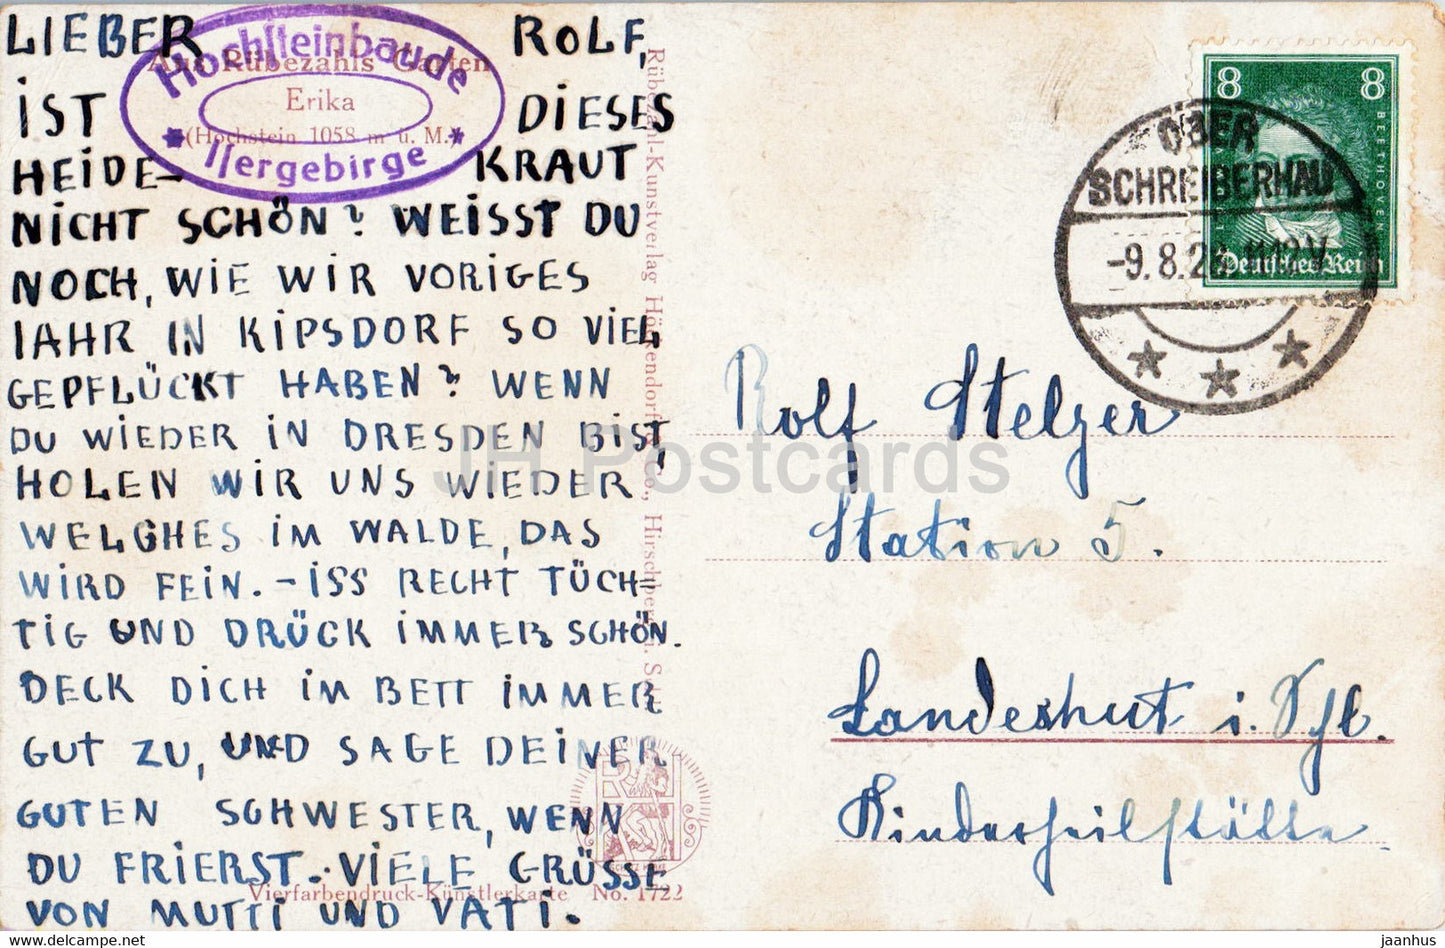 LIEBER ROLF,
IST DIESES
HEIDE- KRAUT
NICHT SCHÖN? WEISST DU
NOCH, WIE WIR VORIGES
IAHR IN KIPSDORF SO VIEL
GEPFLÜCKT HABEN? WENN
DU WIEDER IN DRESDEN BIST,
HOLEN WIR UNS WIEDER
WELCHES IM WALDE, DAS
WIRD FEIN. - ISS RECHT TÜCH=
TIG UND DRÜCK IMMER SCHÖN.
DECK DICH IM BETT IMMER
GUT ZU, UND SAGE DEINER
GUTEN SCHWESTER, WENN
DU FRIERST. VIELE GRÜSSE
VON MUTTI UND VATI.
Hochsteinbaude
Isergebirge
Aus Rübezahls Garten
Erika
(Hochstein 1058 m ü. M.)
Rübezahl-Kunstverlag Höckendorf & Co., Hirschberg i. Schl.
Vierfarbendruck-Künstlerkarte No. 1722
8 8
BEETHOVEN
Deutsches Reich
OBER
SCHREIBERHAU
-9.8.2 11-12V
Rolf Stelzer
Station 5.
Landeshut i. Schl.
Kinderheilstätte
JH Postcards
www.delcampe.net
jaanhus